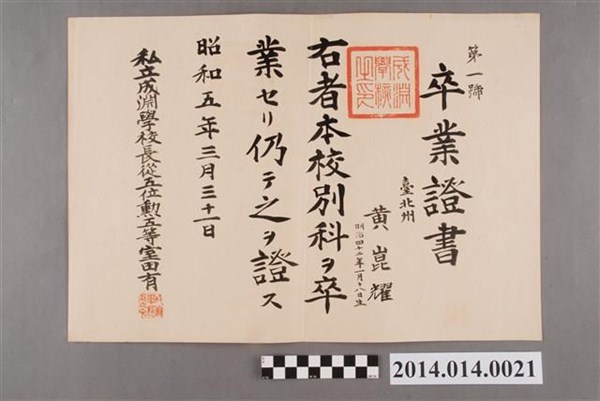 第一號
卒業證書
臺北州
黃崑耀
明治四十二年一月十八日生
右者本校別科ヲ卒
業セリ仍テ之ヲ證ス
昭和五年三月三十一日
私立成淵學校長從五位勳五等室田有
成淵
學校
之印
2014.014.0021